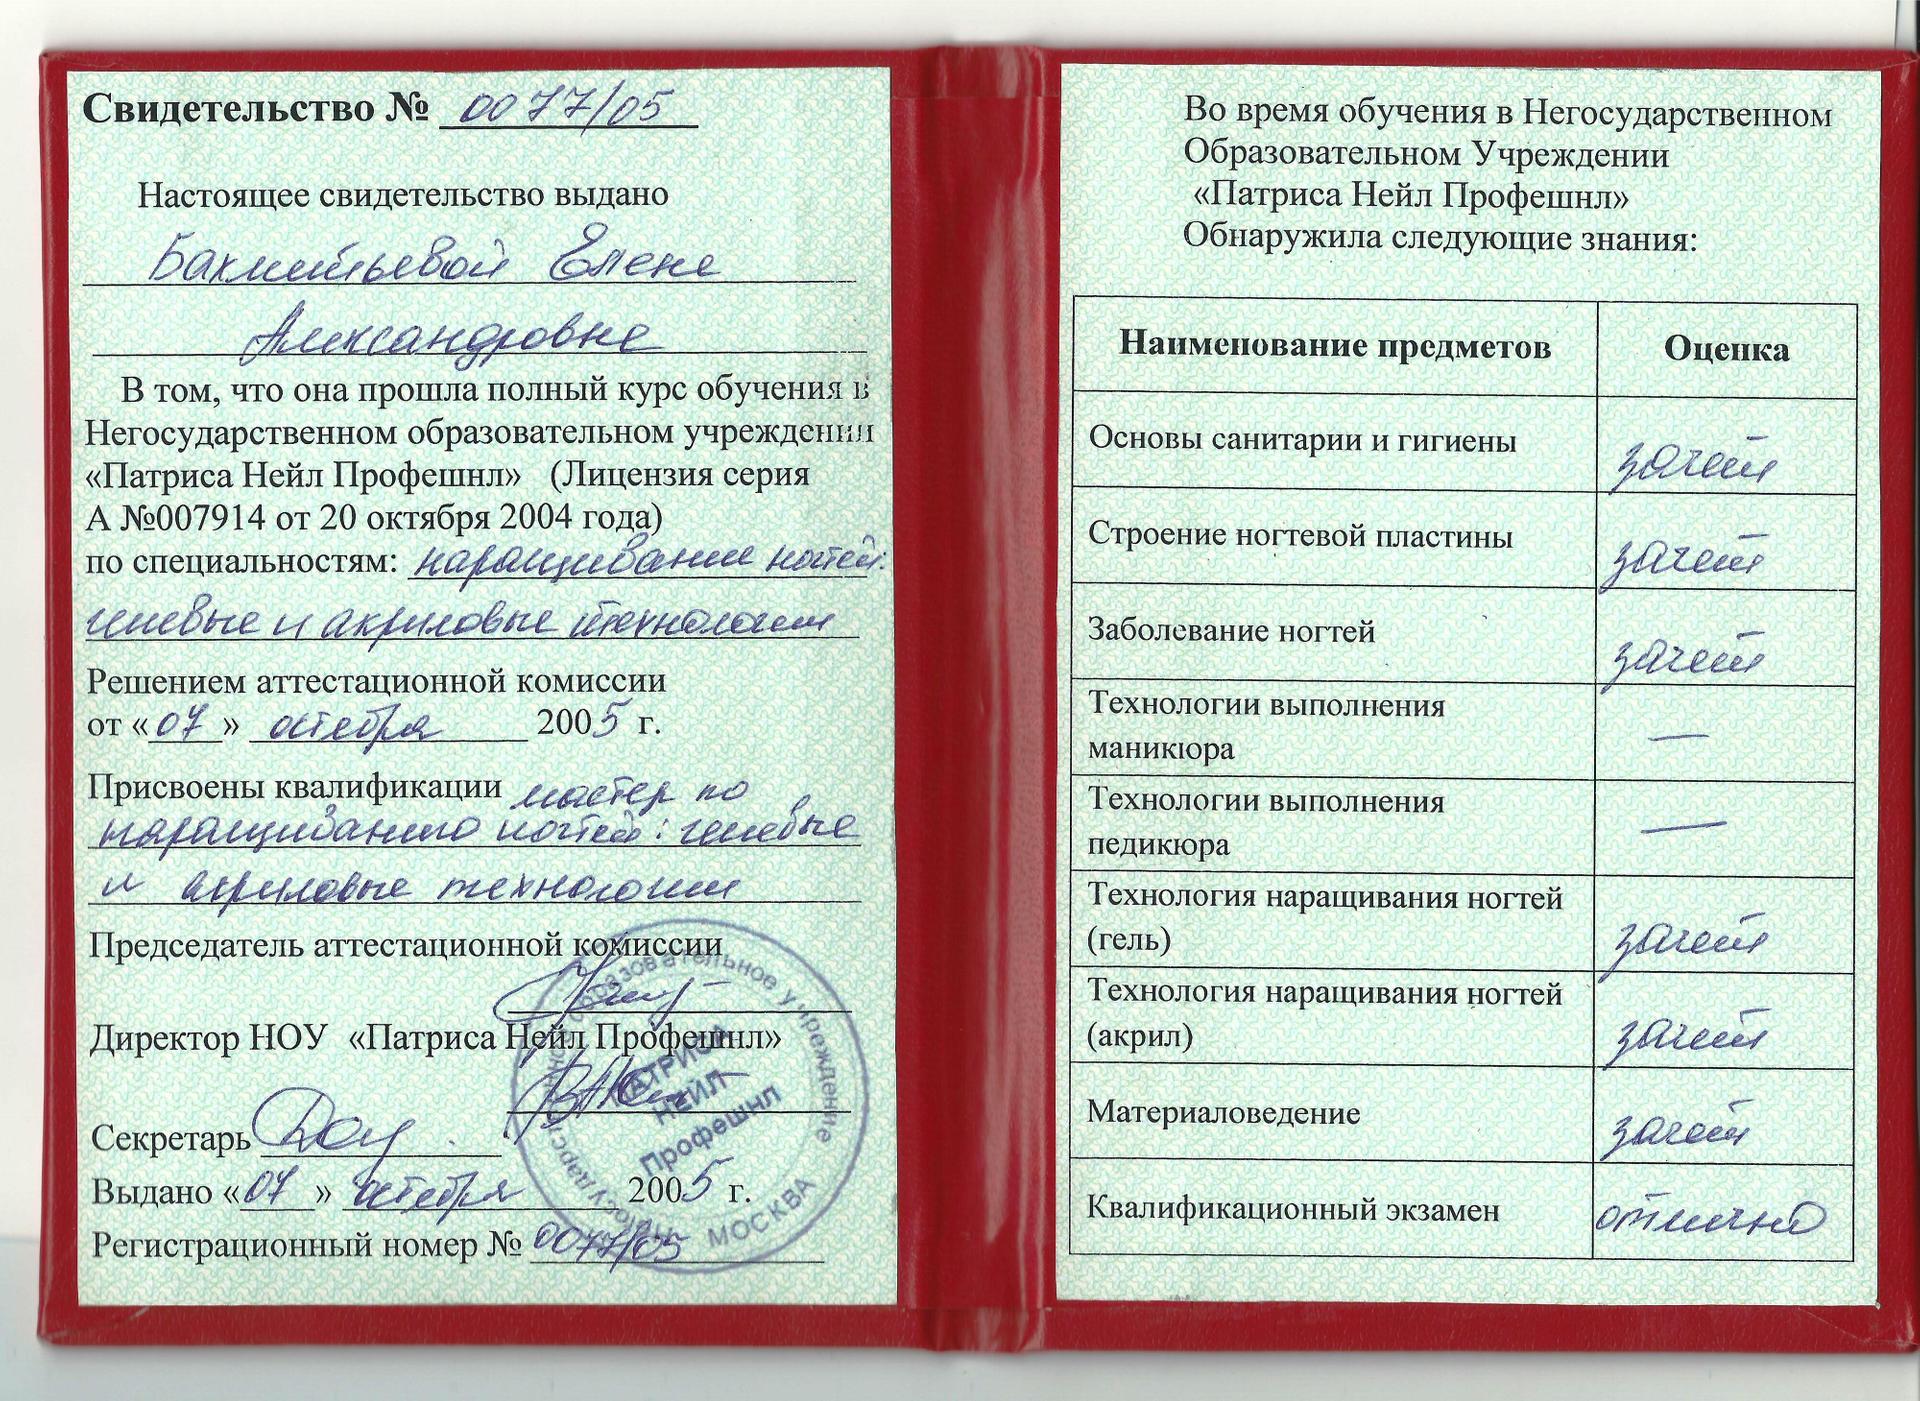 Свидетельство № 0077/05
Настоящее свидетельство выдано
Бахметьевой Елене
Александровне
В том, что она прошла полный курс обучения в
Негосударственном образовательном учреждении
«Патриса Нейл Профешнл» (Лицензия серия
А №007914 от 20 октября 2004 года)
по специальностям: наращивании ногтей:
гелевые и акриловые технологии
Решением аттестационной комиссии
от «07» октября 2005 г.
Присвоены квалификации мастер по
наращиванию ногтей: гелевые
и акриловые технологии
Председатель аттестационной комиссии
Директор НОУ «Патриса Нейл Профешнл»
Секретарь
Выдано «07» октября 2005 г.
Регистрационный номер № 0077/05
образовательное учреждение
ПАТРИСА
НЕЙЛ
Профешнл
МОСКВА
Во время обучения в Негосударственном
Образовательном Учреждении
«Патриса Нейл Профешнл»
Обнаружила следующие знания:
Наименование предметов Оценка
Основы санитарии и гигиены зачет
Строение ногтевой пластины зачет
Заболевание ногтей зачет
Технологии выполнения
маникюра —
Технологии выполнения
педикюра —
Технология наращивания ногтей
(гель) зачет
Технология наращивания ногтей
(акрил) зачет
Материаловедение зачет
Квалификационный экзамен отлично